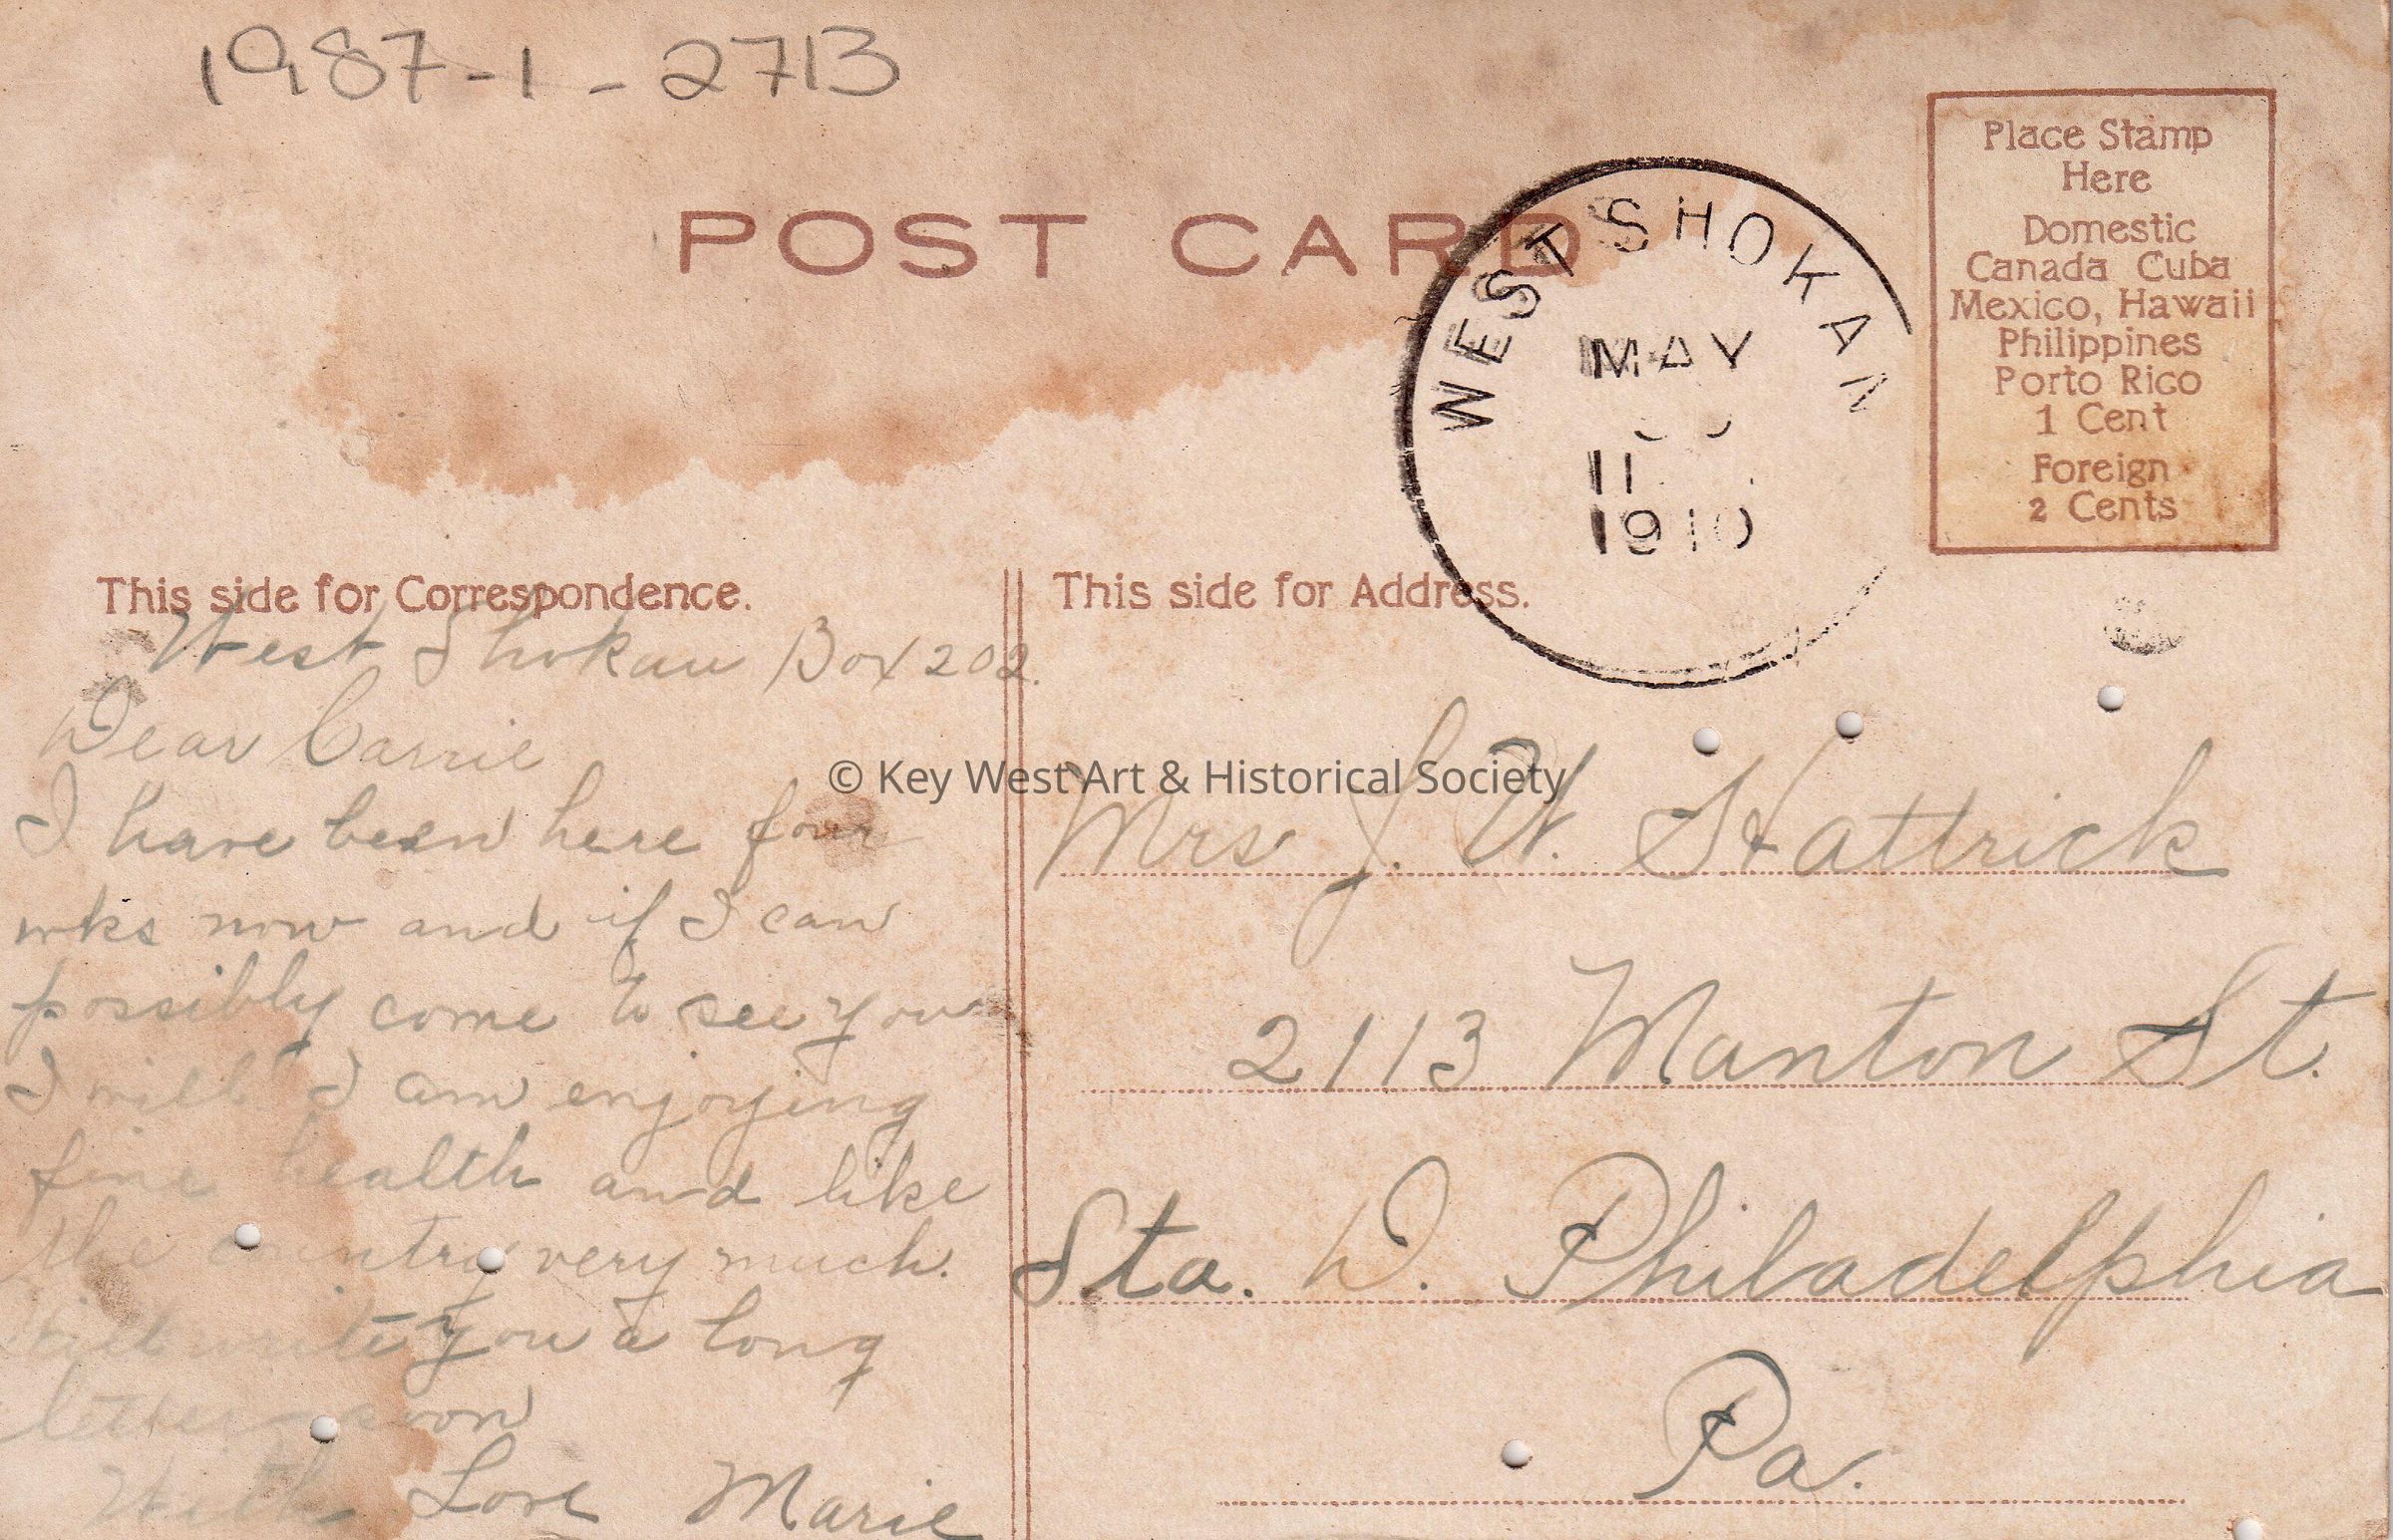 1987-1-2713
POST CARD
WEST SHOKAN
MAY
11
1910
Place Stamp
Here
Domestic
Canada Cuba
Mexico, Hawaii
Philippines
Porto Rico
1 Cent
Foreign
2 Cents
This side for Correspondence.
West Shokan Box 202.
Dear Carrie
I have been here four
wks now and if I can
possibly come to see you
I will. I am enjoying
fine health and like
the country very much.
Will write you a long
letter soon
With Love Marie
This side for Address.
© Key West Art & Historical Society
Mrs J. W. Hattrick
2113 Manton St.
Sta. D. Philadelphia
Pa.